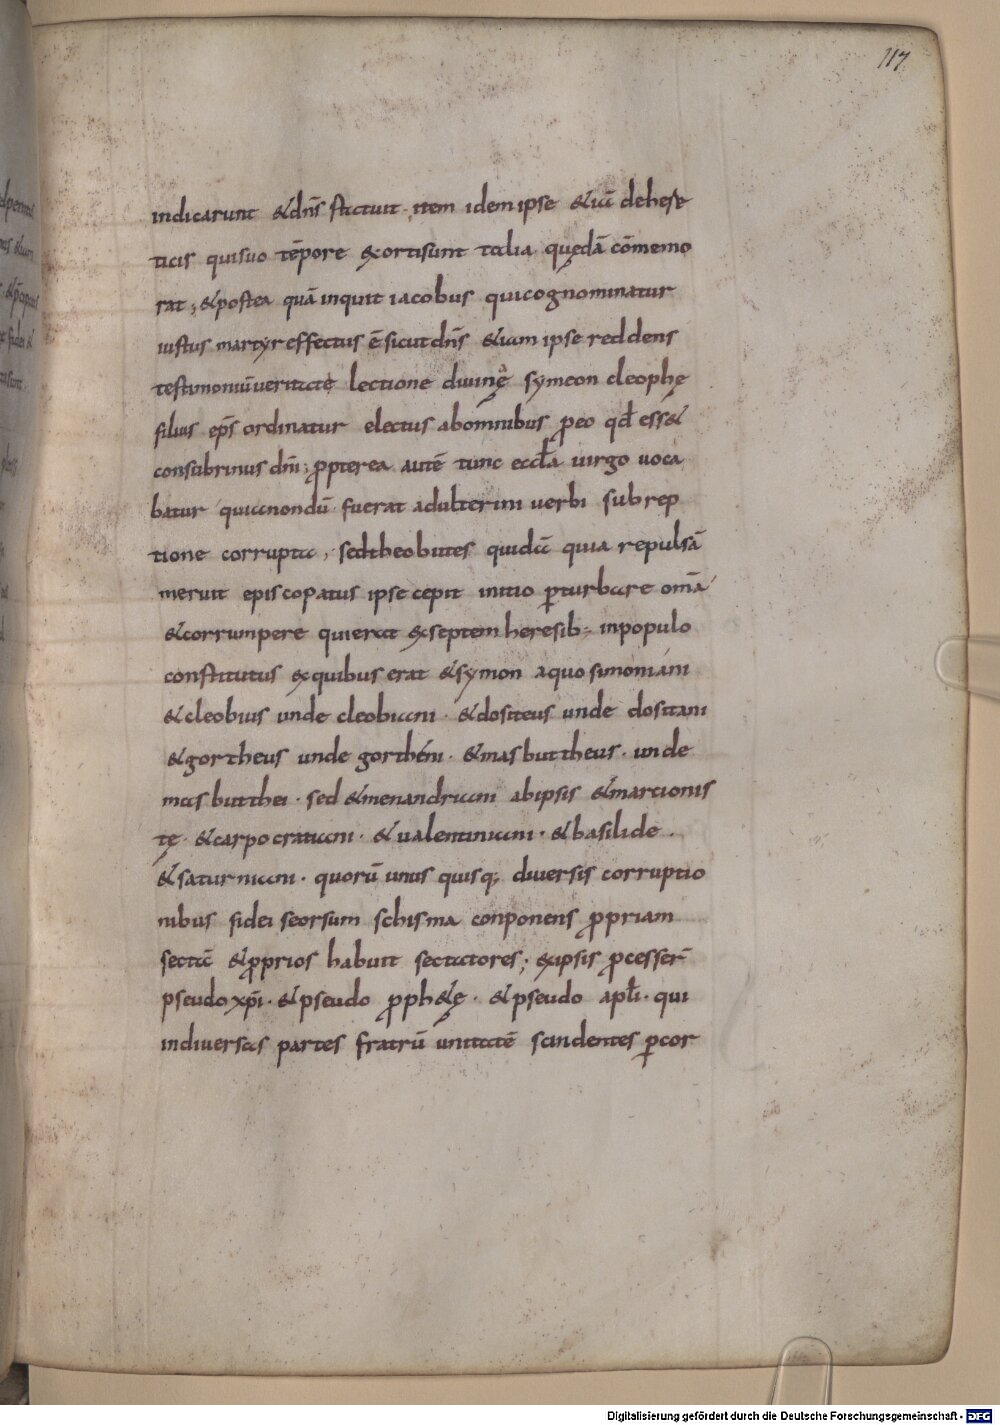 117
indicarunt &dn̄s statuit. item idem ipse &iā dehese
ticis quisuo tēpore exortisunt talia quędā cōmemo
rat; &postea quā inquit iacobus quicognominatur
iustus martyr effectus ē sicut dn̄s &iam ipse reddens
testimoniū ueritatę lectione diuinę symeon cleophę
filius ep̄s ordinatur electus abomnibus p̄eo qđ ess&
consubrinus dn̄i; ꝓpterea autē tunc eccl̄a uirgo uoca
batur quianondū fuerat adulterini uerbi subrep
tione corrupta, sedtheobutes quidā quia repulsā
meruit episcopatus ipse cepit initio ꝑturbare omā
&corrumpere quierat exseptem heresib; inpopulo
constitutus exquibus erat &symon aquo simoniani
&cleobius unde cleobiani. &dositeus unde dositani
&gortheus unde gorthéni. &masbuttheus. unde
masbutthei. sed &menandriani abipsis &marcionis
tę. &carpocratiani. &ualentiniani. &basilide.
&saturniani. quorū unus quisq; diuersis corruptio
nibus fidei seorsum schisma conponens ꝓpriam
sectā &ꝓprios habuit sectatores; exipsis ꝓcesser̄
pseudo xp̄i. &pseudo ꝓph&ę. &pseudo apl̄i. qui
indiuersas partes fratrū unitatē scindentes ꝑcor
Digitalisierung gefördert durch die Deutsche Forschungsgemeinschaft - DFG